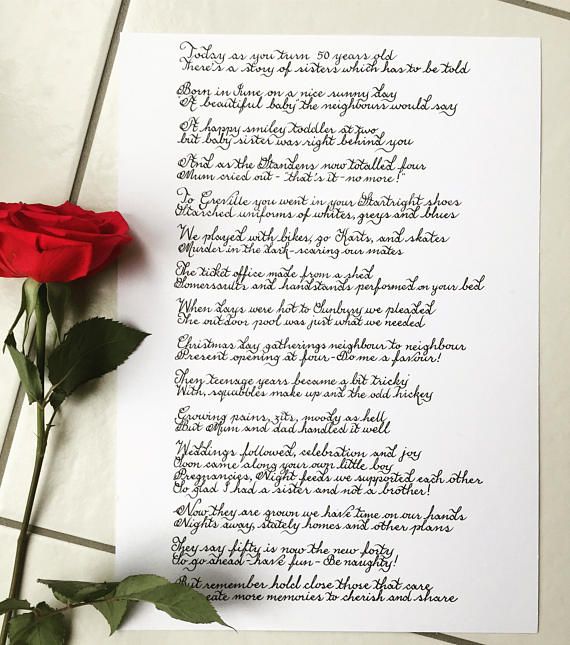 Today as you turn 50 years old
There's a story of sisters which has to be told
Born in June on a nice sunny day
"A beautiful baby the neighbours would say
A happy smiley toddler at two
but baby sister was right behind you
And as the Standens now totalled four
Mum cried out - "that's it - no more!"
To Greville you went in your Startright shoes
Starched uniforms of whites, greys and blues
We played with bikes, go Karts, and skates
Murder in the dark - scaring our mates
The ticket office made from a shed
Somersaults and handstands performed on your bed
When days were hot to Sunbury we pleaded
The outdoor pool was just what we needed
Christmas day gatherings neighbour to neighbour
Present opening at four - Do me a favour!
Then teenage years became a bit tricky
With, squabbles make up and the odd hickey
Growing pains, zits, moody as hell
But Mum and dad handled it well
Weddings followed, celebration and joy
Soon came along your own little boy
Pregnancies, Night feeds we supported each other
So glad I had a sister and not a brother!
Now they are grown we have time on our hands
Nights away, stately homes and other plans
They say fifty is now the new forty
So go ahead - have fun - Be naughty!
But remember hold close those that care
more memories to cherish and share